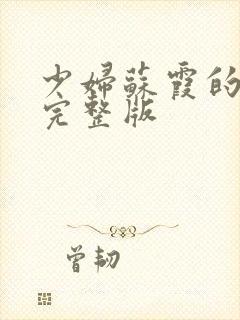 少婦蘇霞的
完整版
曾韌